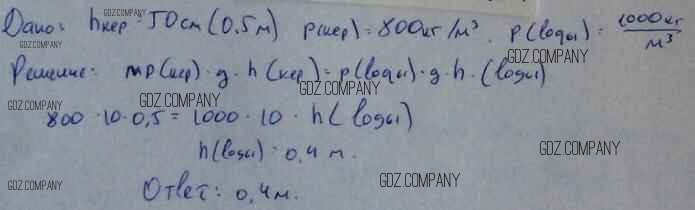 Дано: hкер = 50см (0.5м) p(кер) = 800кг/м³. p(воды) = 1000кг/м³
Решение: mp(кер)·g·h(кер) = p(воды)·g·h·(воды)
800·10·0,5 = 1000·10·h(воды)
h(воды) = 0,4 м.
Ответ: 0,4м.
GDZ.COMPANY
GDZ.COMPANY
GDZ.COMPANY
GDZ.COMPANY
GDZ.COMPANY
GDZ.COMPANY
GDZ.COMPANY
GDZ.COMPANY
GDZ.COMPANY
GDZ.COMPANY